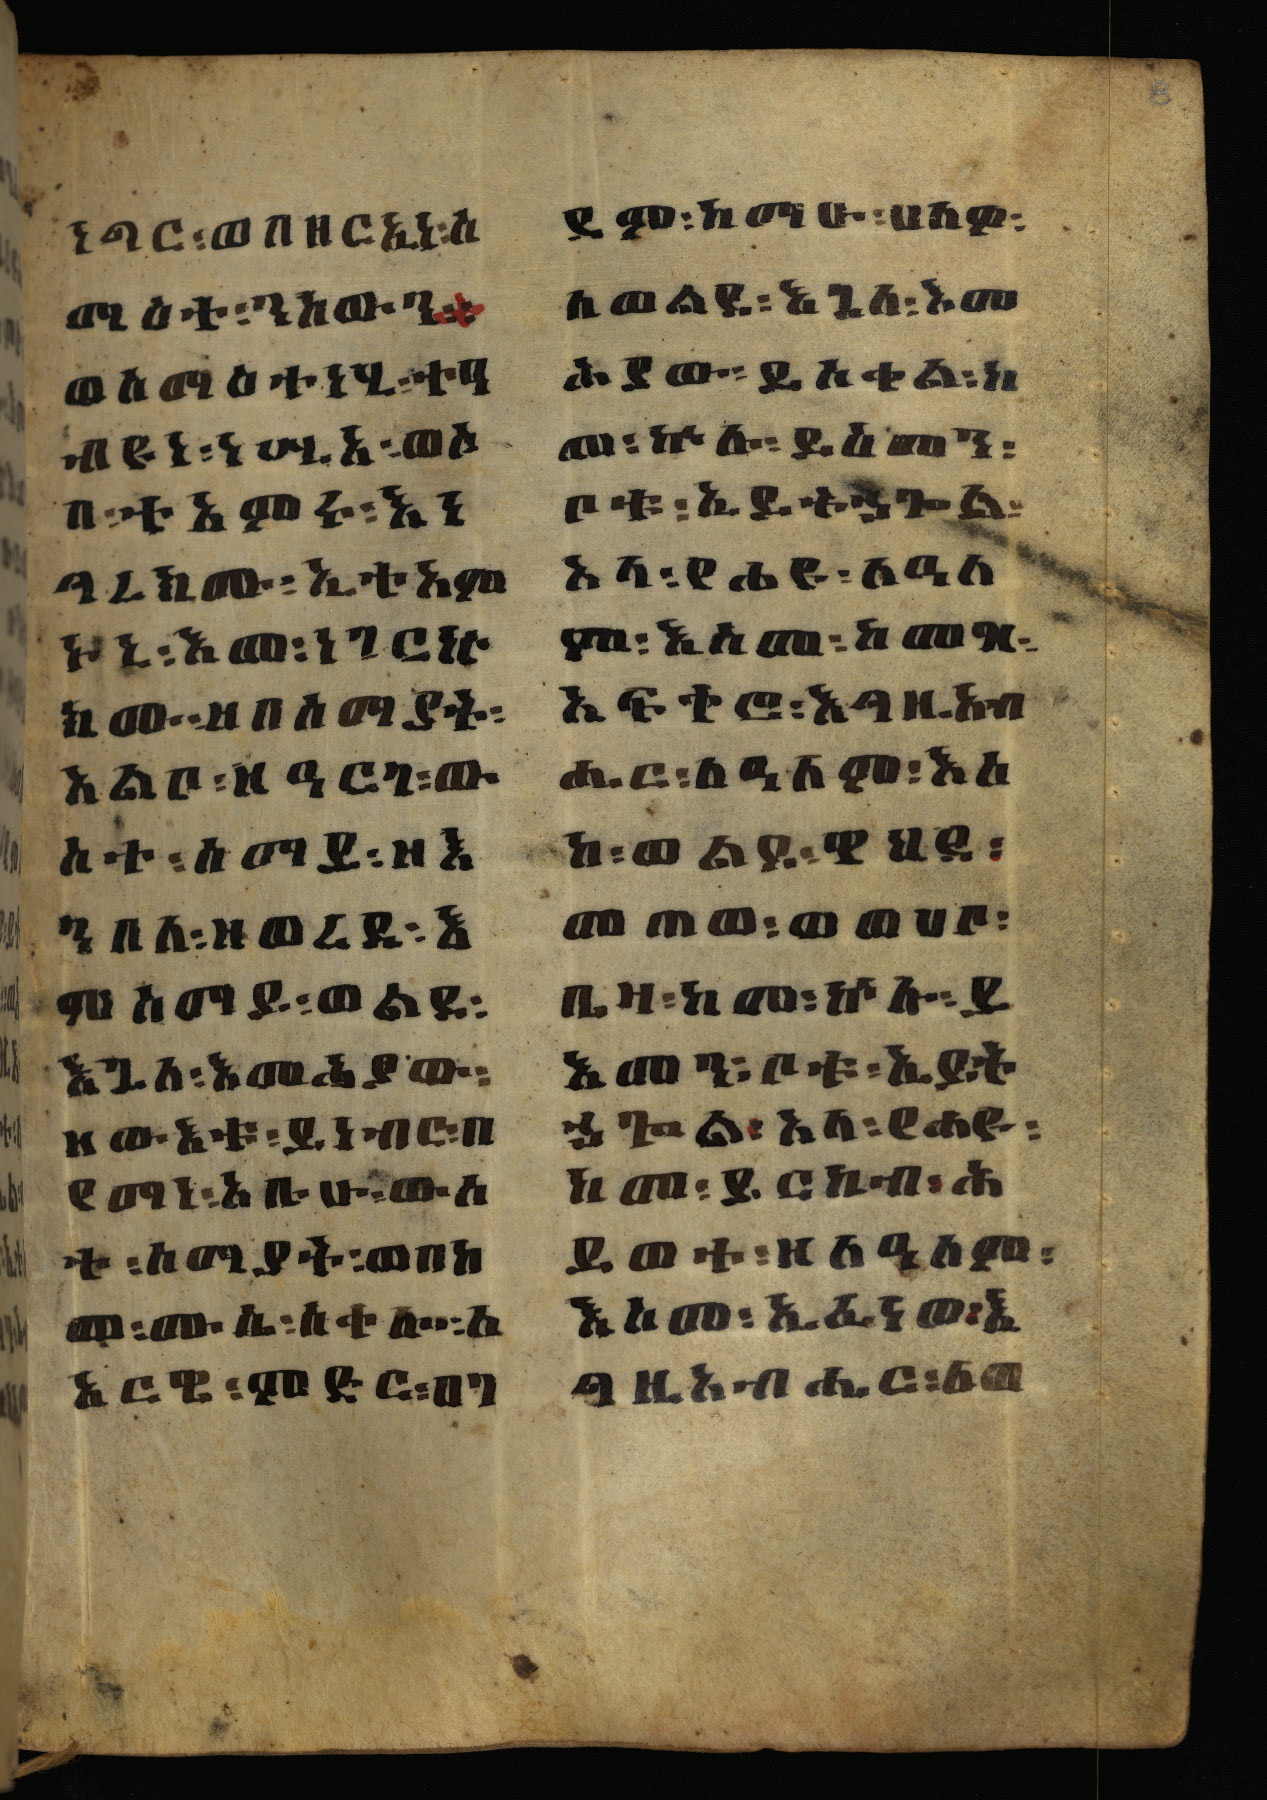 ነጋር፡ወበዘርኢነ፡ስ
ማዕት፡ንከውን።
ወለማዕትነሂ፡ተዓ
ብየነ፡ነሣእ፡ወለ
በ፡ትእምሩ፡እን
ዳረክሙ፡ኢተአም
ኑኒ፡እመ፡ነገርኩ
ክሙ፡ዘበሰማያት፡
አልቦ፡ዘዓርገ፡ው
ስተ፡ሰማይ፡ዘእ
ንበለ፡ዘወረደ፡እ
ምሰማይ፡ወልደ፡
እጓለ፡እመሕያው፡
ዘውእቱ፡ይነብር፡በ
የማነ፡አቡሁ፡ውስ
ተ፡ሰማያት፡ወበከ
መ፡ሙሴ፡ሰቀሎ፡ለ
አርዌ፡ምድር፡በገ
ዳም፡ከማሁ፡ሀለዎ፡
ለወልደ፡እጓለ፡እመ
ሕያው፡ይሰቀል፡ከ
መ፡ኵሉ፡ዘየአመን፡
ቦቱ፡ኢይትኃጐል፡
አላ፡የሐዩ፡ለዓለ
ም፡እስመ፡ከመዝ፡
አፍቀሮ፡እግዚአብ
ሔር፡ለዓለም፡እስ
ከ፡ወልዶ፡ዋህደ፡
መጠወ፡ወወሀቦ፡
ቤዛ፡ከመ፡ኵሉ፡ዘ
የአመን፡ቦቱ፡ኢይት
ኃጐል፡አላ፡የሐዩ፡
ከመ፡ይርከብ፡ሕ
ይወት፡ዘለዓለም፡
እስመ፡ኢፈነወ፡እ
ግዚአብሔር፡ለወ